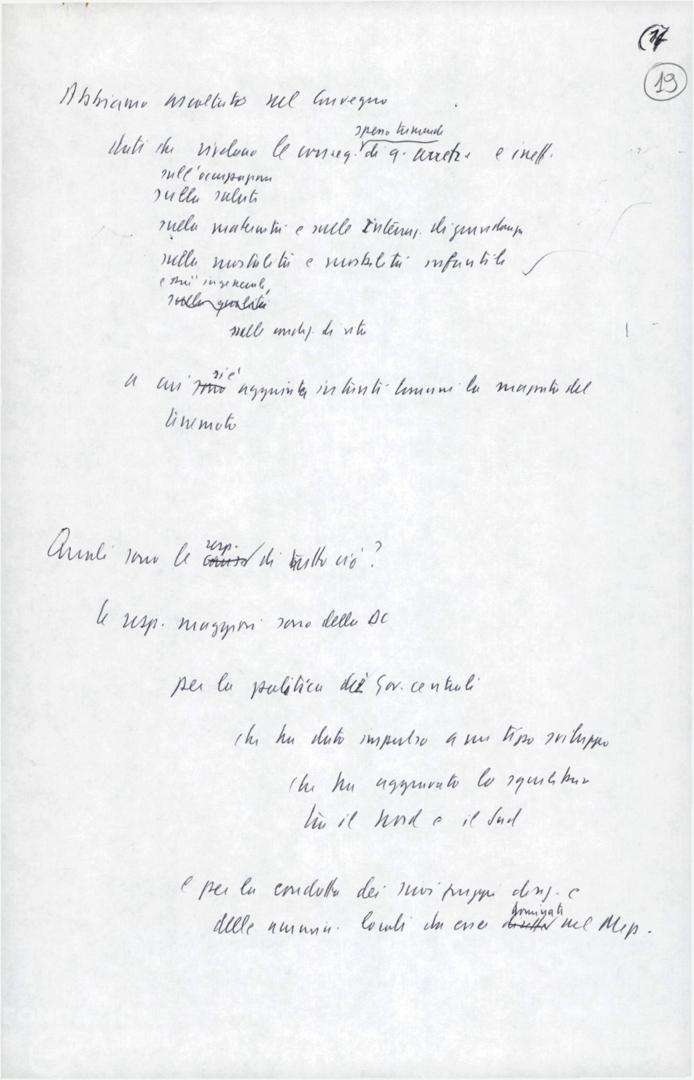 17
19
Abbiamo ascoltato nel Convegno
spesso tremende
dati che rivelano le conseg. di q. arretr. e ineff.
sull'occupazione
sulla salute
sulla maternità e sulle interruz. di gravidanza
sulla mortalità e mortalità infantile
e più in generale,
sulla qualità
sulle condiz. di vita
si è
a cui sono aggiunta in tanti comuni la del
terremoto
resp.
Quali sono le cause di tutto ciò?
le resp. maggiori sono della DC
per la politica dei Gov. centrali
che ha dato impulso a un tipo sviluppo
che ha aggravato lo squilibrio
tra il Nord e il Sud
e per la condotta dei suoi gruppi dirig. e
dominati
delle ammin. locali da essa nel Mezp.